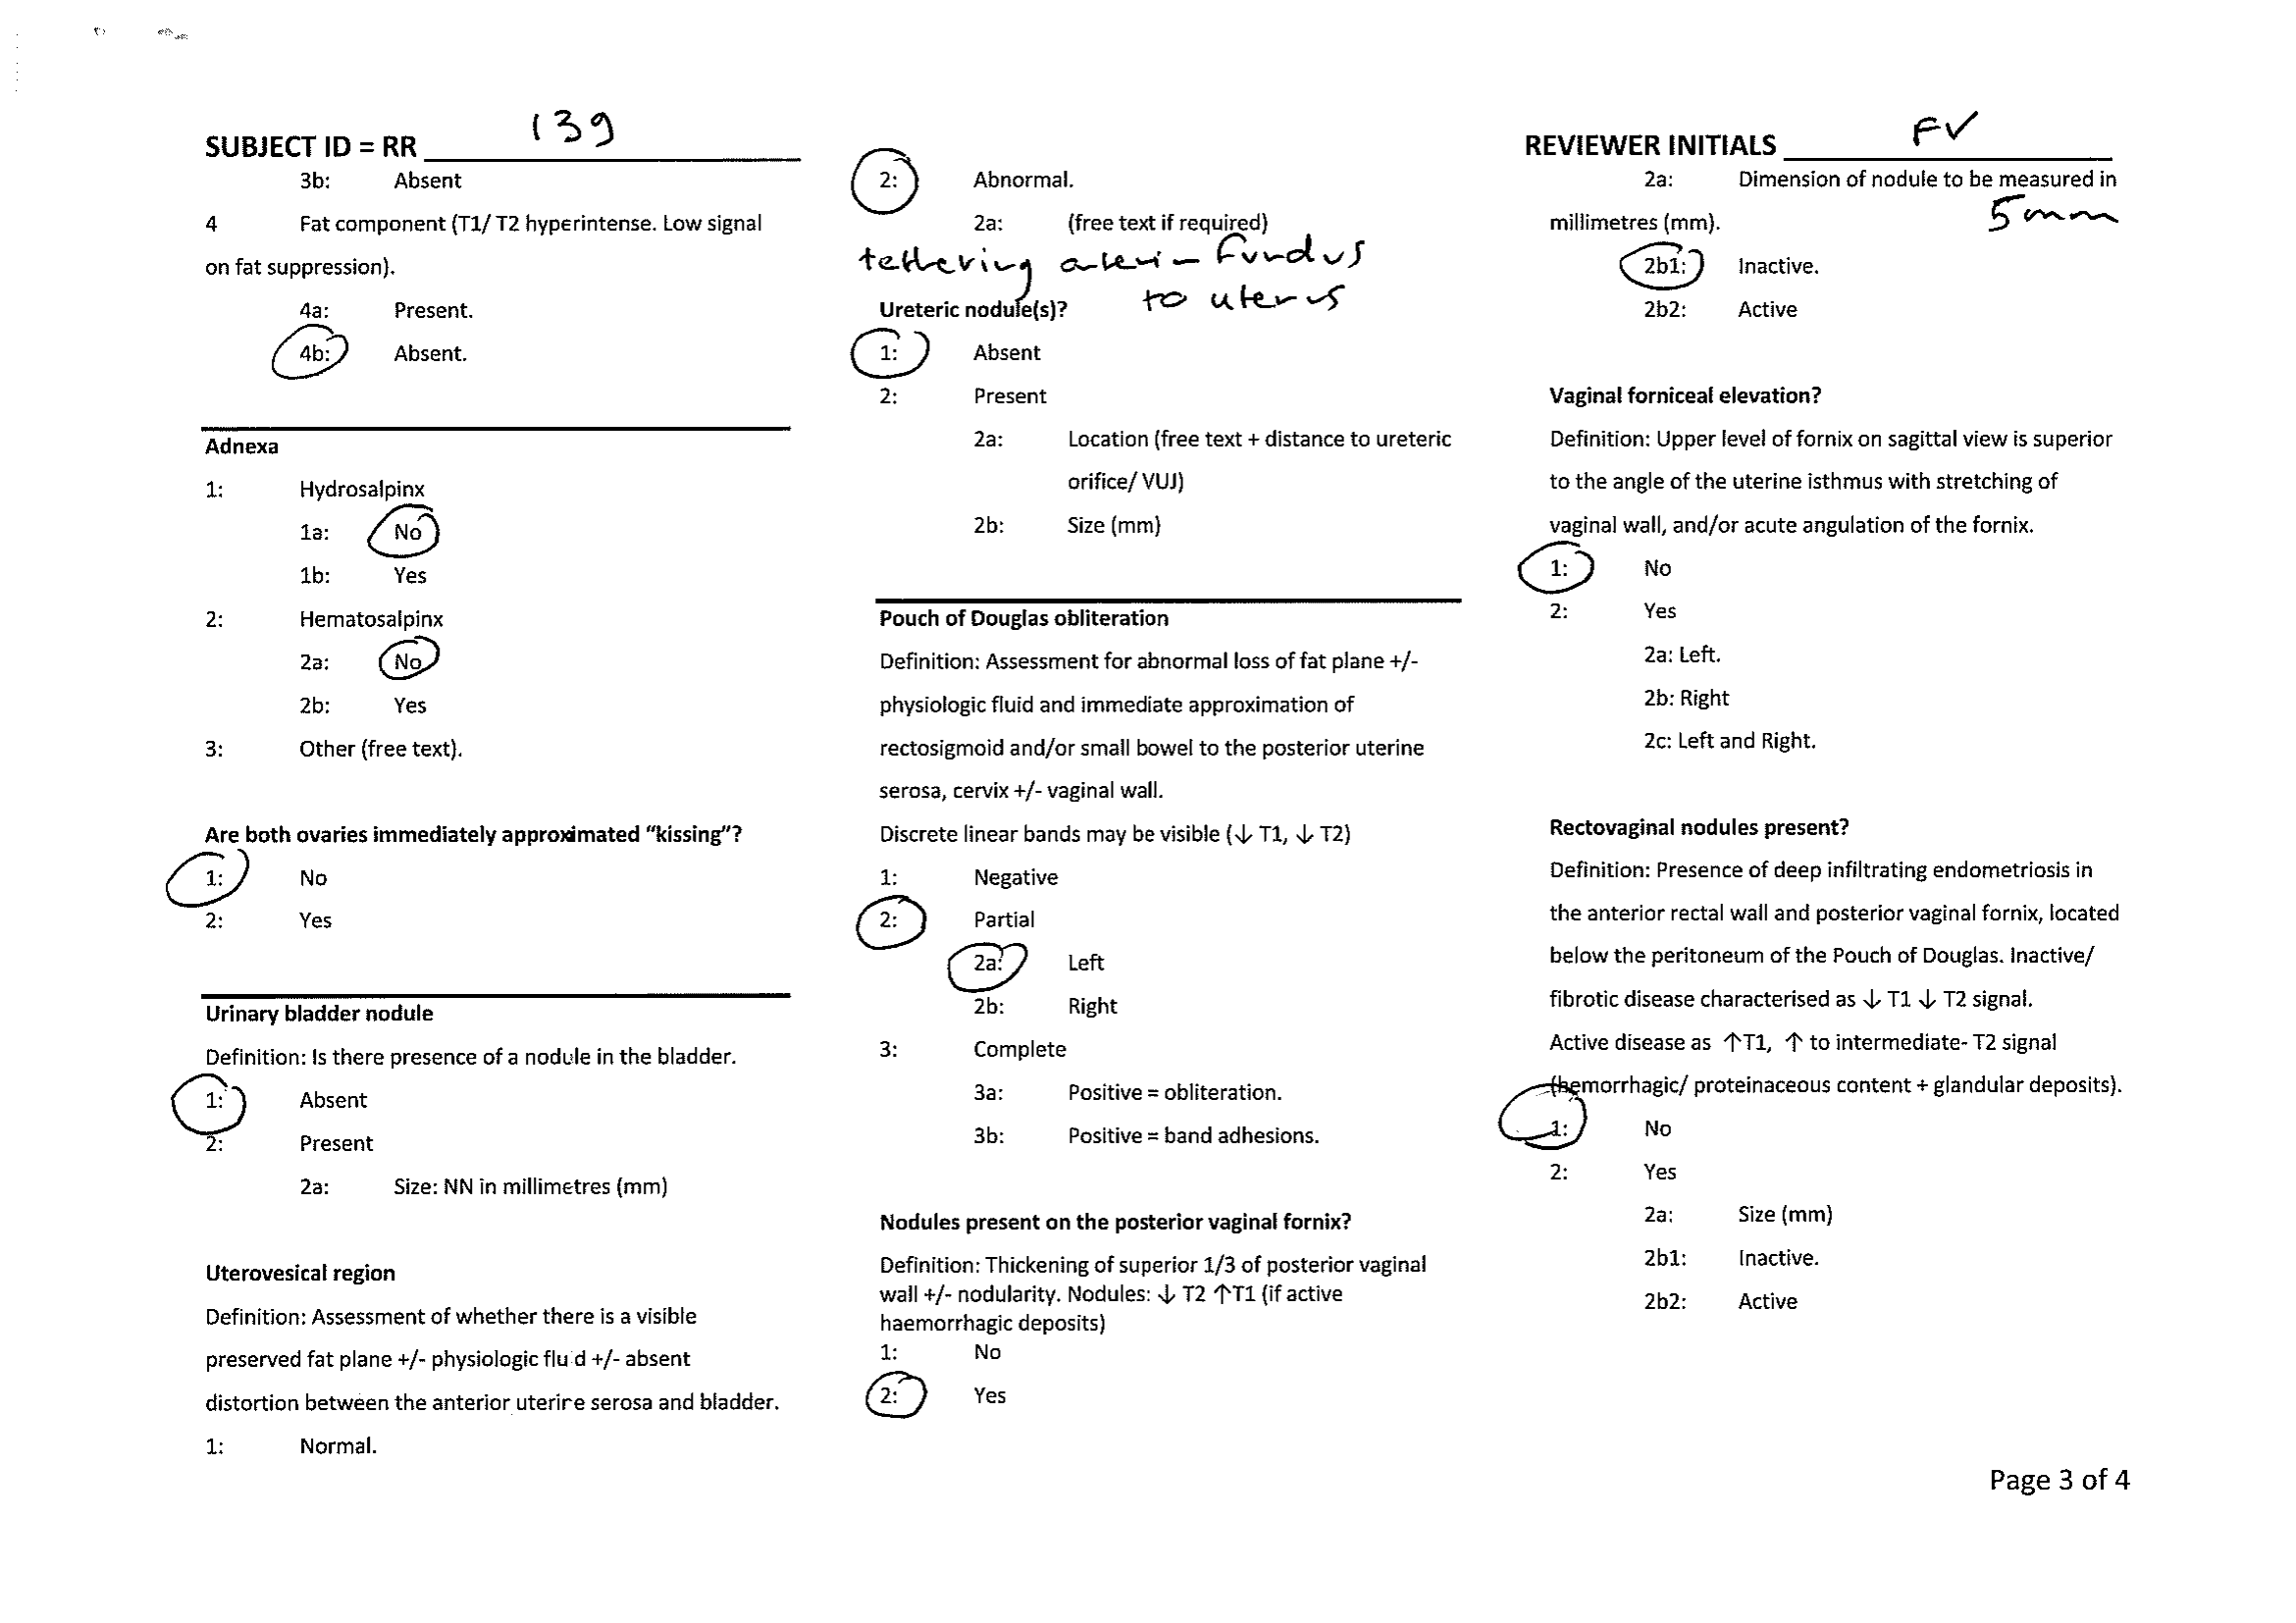 SUBJECT ID = RR 139
3b: Absent
4 Fat component (T1/ T2 hyperintense. Low signal
on fat suppression).
4a: Present.
4b: Absent.
Adnexa
1: Hydrosalpinx
1a: No
1b: Yes
2: Hematosalpinx
2a: No
2b: Yes
3: Other (free text).
Are both ovaries immediately approximated “kissing”?
1: No
2: Yes
Urinary bladder nodule
Definition: Is there presence of a nodule in the bladder.
1: Absent
2: Present
2a: Size: NN in millimetres (mm)
Uterovesical region
Definition: Assessment of whether there is a visible
preserved fat plane +/- physiologic fluid +/- absent
distortion between the anterior uterine serosa and bladder.
1: Normal.
2: Abnormal.
2a: (free text if required)
tethering fundus
to uterus
Ureteric nodule(s)?
1: Absent
2: Present
2a: Location (free text + distance to ureteric
orifice/ VUJ)
2b: Size (mm)
Pouch of Douglas obliteration
Definition: Assessment for abnormal loss of fat plane +/-
physiologic fluid and immediate approximation of
rectosigmoid and/or small bowel to the posterior uterine
serosa, cervix +/- vaginal wall.
Discrete linear bands may be visible (↓ T1, ↓ T2)
1: Negative
2: Partial
2a: Left
2b: Right
3: Complete
3a: Positive = obliteration.
3b: Positive = band adhesions.
Nodules present on the posterior vaginal fornix?
Definition: Thickening of superior 1/3 of posterior vaginal
wall +/- nodularity. Nodules: ↓ T2 ↑T1 (if active
haemorrhagic deposits)
1: No
2: Yes
REVIEWER INITIALS FV
2a: Dimension of nodule to be measured in
millimetres (mm). 5mm
2b1: Inactive.
2b2: Active
Vaginal forniceal elevation?
Definition: Upper level of fornix on sagittal view is superior
to the angle of the uterine isthmus with stretching of
vaginal wall, and/or acute angulation of the fornix.
1: No
2: Yes
2a: Left.
2b: Right
2c: Left and Right.
Rectovaginal nodules present?
Definition: Presence of deep infiltrating endometriosis in
the anterior rectal wall and posterior vaginal fornix, located
below the peritoneum of the Pouch of Douglas. Inactive/
fibrotic disease characterised as ↓ T1 ↓ T2 signal.
Active disease as ↑T1, ↑ to intermediate- T2 signal
(hemorrhagic/ proteinaceous content + glandular deposits).
1: No
2: Yes
2a: Size (mm)
2b1: Inactive.
2b2: Active
Page 3 of 4